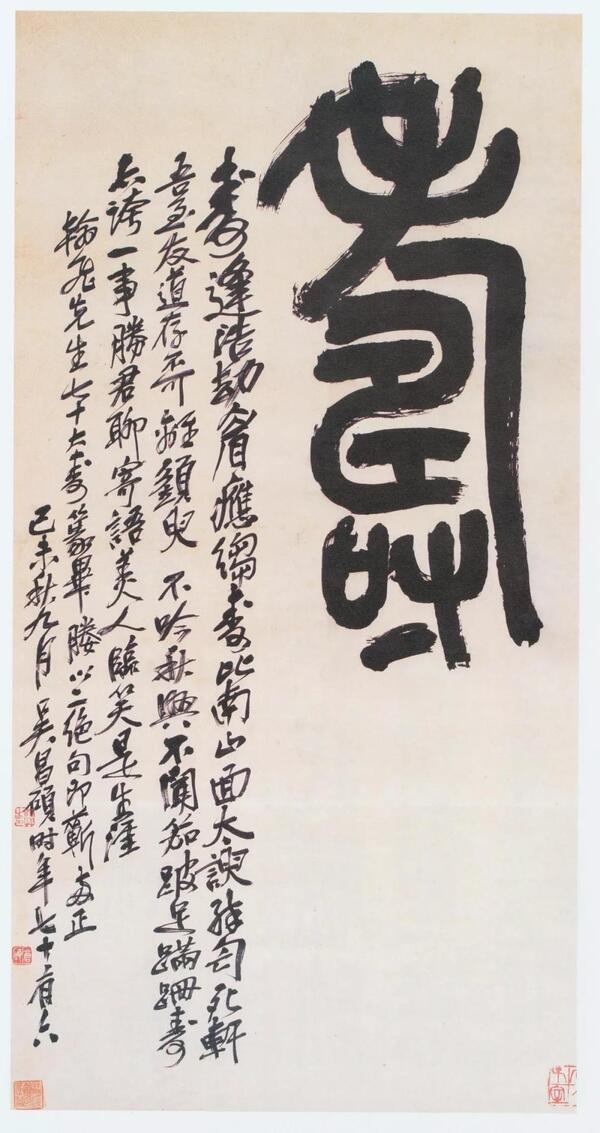 壽
壽逢浩劫眉應縐壽比南山面太諛軒
吾至友道存 不吟秋興不聞笳跛足蹣跚壽
亦誇一事勝君聊寄語美人臨笑是生涯
先生七十六壽篆畢媵以二絕句即蘄兩正
己未秋九月吳昌碩時年七十有六